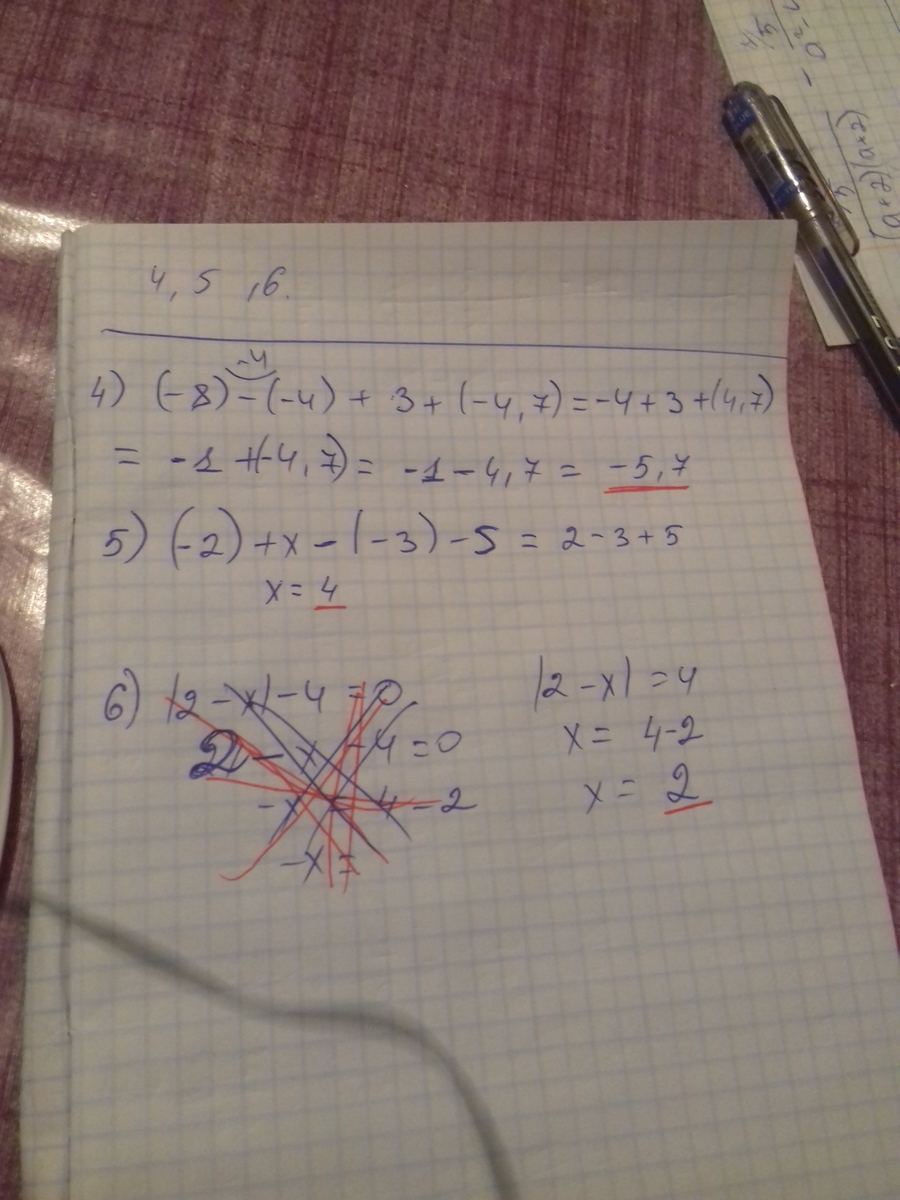 4, 5 ,6.
-4
4) (-8) - (-4) + 3 + (-4,7) = -4 + 3 + (4,7)
= -1 +(-4,7) = -1 - 4,7 = -5,7
5) (-2) + x - (-3) - 5 = 2 - 3 + 5
x = 4
6) |2 - x| - 4 = 0
2 - x - 4 = 0
-x = 4 - 2
-x
|2 - x| = 4
x = 4-2
x = 2
(a+2)(a+2)